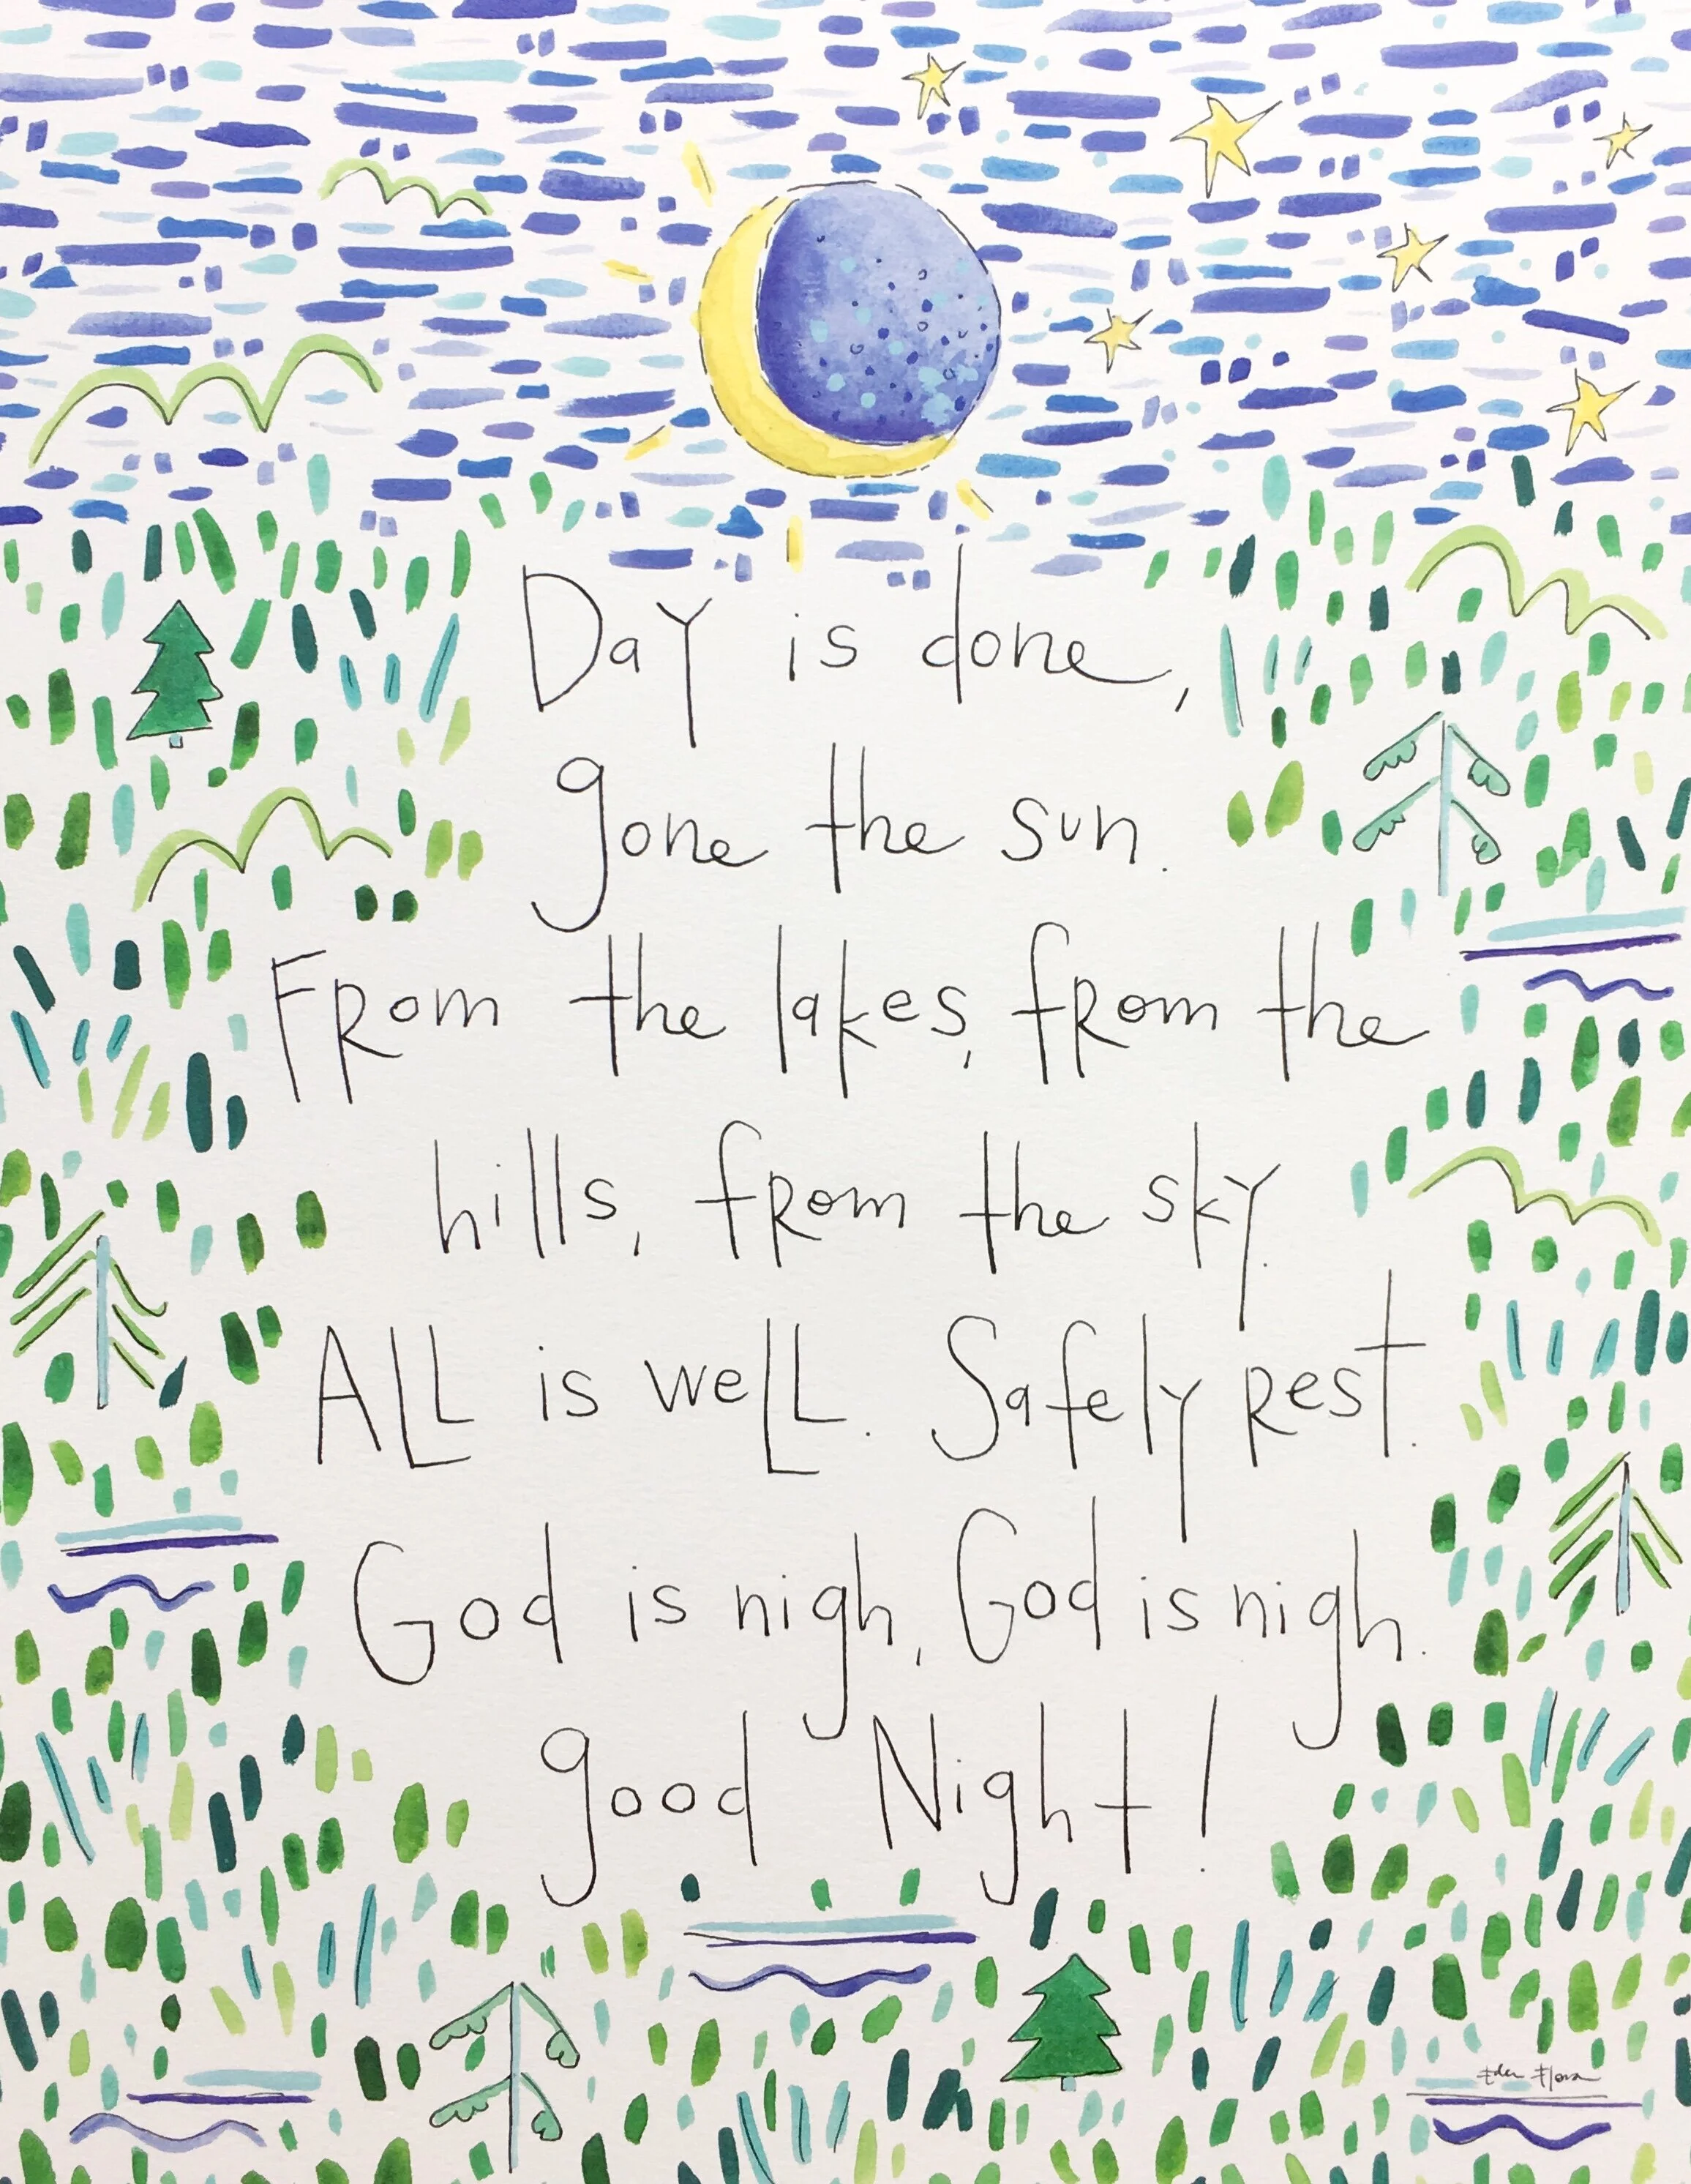 Day is done,
gone the sun.
From the lakes, from the
hills, from the sky.
ALL is weLL. Safely rest.
God is nigh, God is nigh.
good Night!
Eden Flora